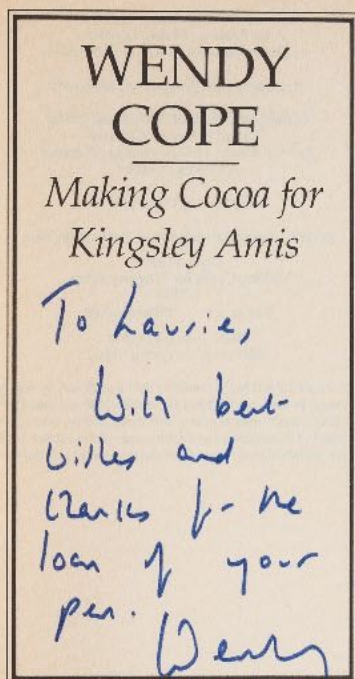 WENDY
COPE
Making Cocoa for
Kingsley Amis
To Laurie,
With best
wishes and
thanks for the
loan of your
pen.
Wendy